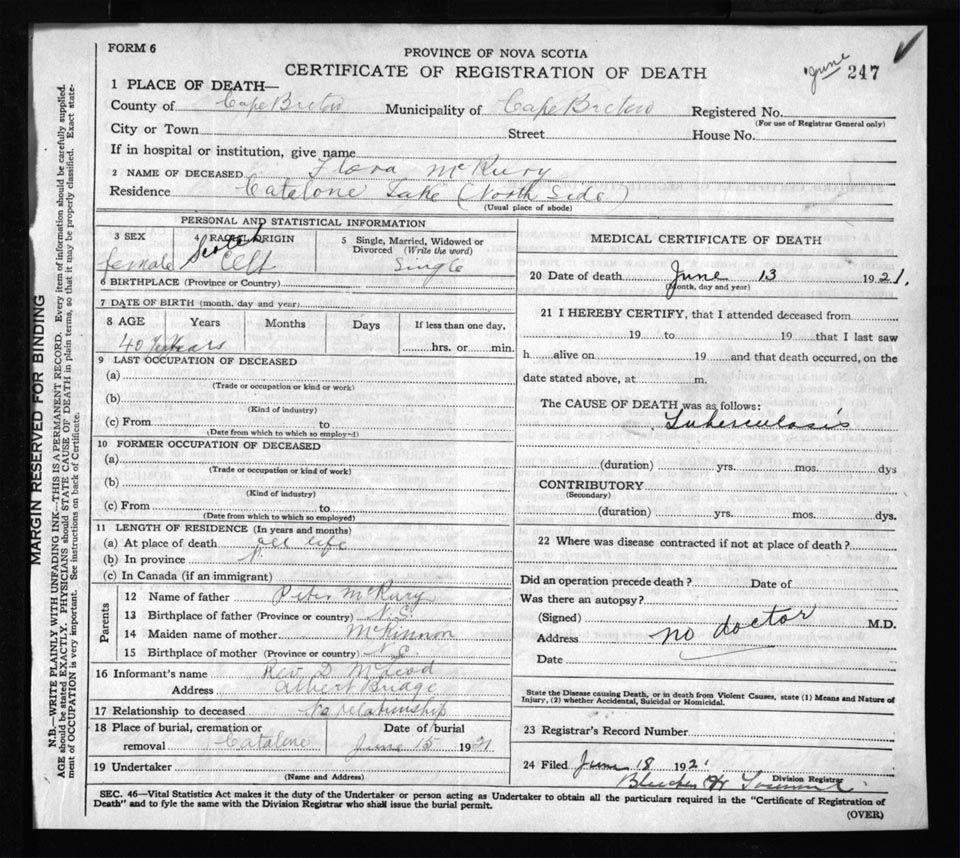 FORM 6
PROVINCE OF NOVA SCOTIA
CERTIFICATE OF REGISTRATION OF DEATH
June 247
1 PLACE OF DEATH—
County of Cape Breton Municipality of Cape Breton Registered No.
(For use of Registrar General only)
City or Town Street House No.
If in hospital or institution, give name
2 NAME OF DECEASED Flora McRury
Residence Catalone Lake (North Side)
(Usual place of abode)
PERSONAL AND STATISTICAL INFORMATION
3 SEX 4 RACIAL ORIGIN 5 Single, Married, Widowed or Divorced (Write the word)
female Scotch Celt Single
6 BIRTHPLACE (Province or Country)
7 DATE OF BIRTH (month, day and year)
8 AGE Years Months Days If less than one day,
40 Years hrs. or min.
9 LAST OCCUPATION OF DECEASED
(a)
(Trade or occupation or kind or work)
(b)
(Kind of industry)
(c) From to
(Date from which to which so employed)
10 FORMER OCCUPATION OF DECEASED
(a)
(Trade or occupation or kind of work)
(b)
(Kind of industry)
(c) From to
(Date from which to which so employed)
11 LENGTH OF RESIDENCE (In years and months)
(a) At place of death all life
(b) In province "
(c) In Canada (if an immigrant)
Parents
12 Name of father Peter McRury
13 Birthplace of father (Province or country) N.S
14 Maiden name of mother McKinnon
15 Birthplace of mother (Province or country) N S
16 Informant's name Rev D McLeod
Address Albert Bridge
17 Relationship to deceased No relationship
18 Place of burial, cremation or Date of burial
removal Catalone June 15 1921
19 Undertaker
(Name and Address)
MEDICAL CERTIFICATE OF DEATH
20 Date of death June 13 1921.
(Month, day and year)
21 I HEREBY CERTIFY, that I attended deceased from
19 to 19 that I last saw
h alive on 19 and that death occurred, on the
date stated above, at m.
The CAUSE OF DEATH was as follows:
Tuberculosis
(duration) yrs. mos. dys
CONTRIBUTORY
(Secondary)
(duration) yrs. mos. dys.
22 Where was disease contracted if not at place of death?
Did an operation precede death? Date of
Was there an autopsy?
(Signed) M.D.
Address no doctor
Date
State the Disease causing Death, or in death from Violent Causes, state (1) Means and Nature of
Injury, (2) whether Accidental, Suicidal or Homicidal.
23 Registrar's Record Number
24 Filed June 18 1921
Division Registrar
SEC. 46—Vital Statistics Act makes it the duty of the Undertaker or person acting as Undertaker to obtain all the particulars required in the "Certificate of Registration of
Death" and to fyle the same with the Division Registrar who shall issue the burial permit.
(OVER)
MARGIN RESERVED FOR BINDING
N.B.—WRITE PLAINLY WITH UNFADING INK—THIS IS A PERMANENT RECORD. Every item of information should be carefully supplied.
AGE should be stated EXACTLY. PHYSICIANS should STATE CAUSE OF DEATH in plain terms, so that it may be properly classified. Exact state-
ment of OCCUPATION is very important. See instructions on back of Certificate.